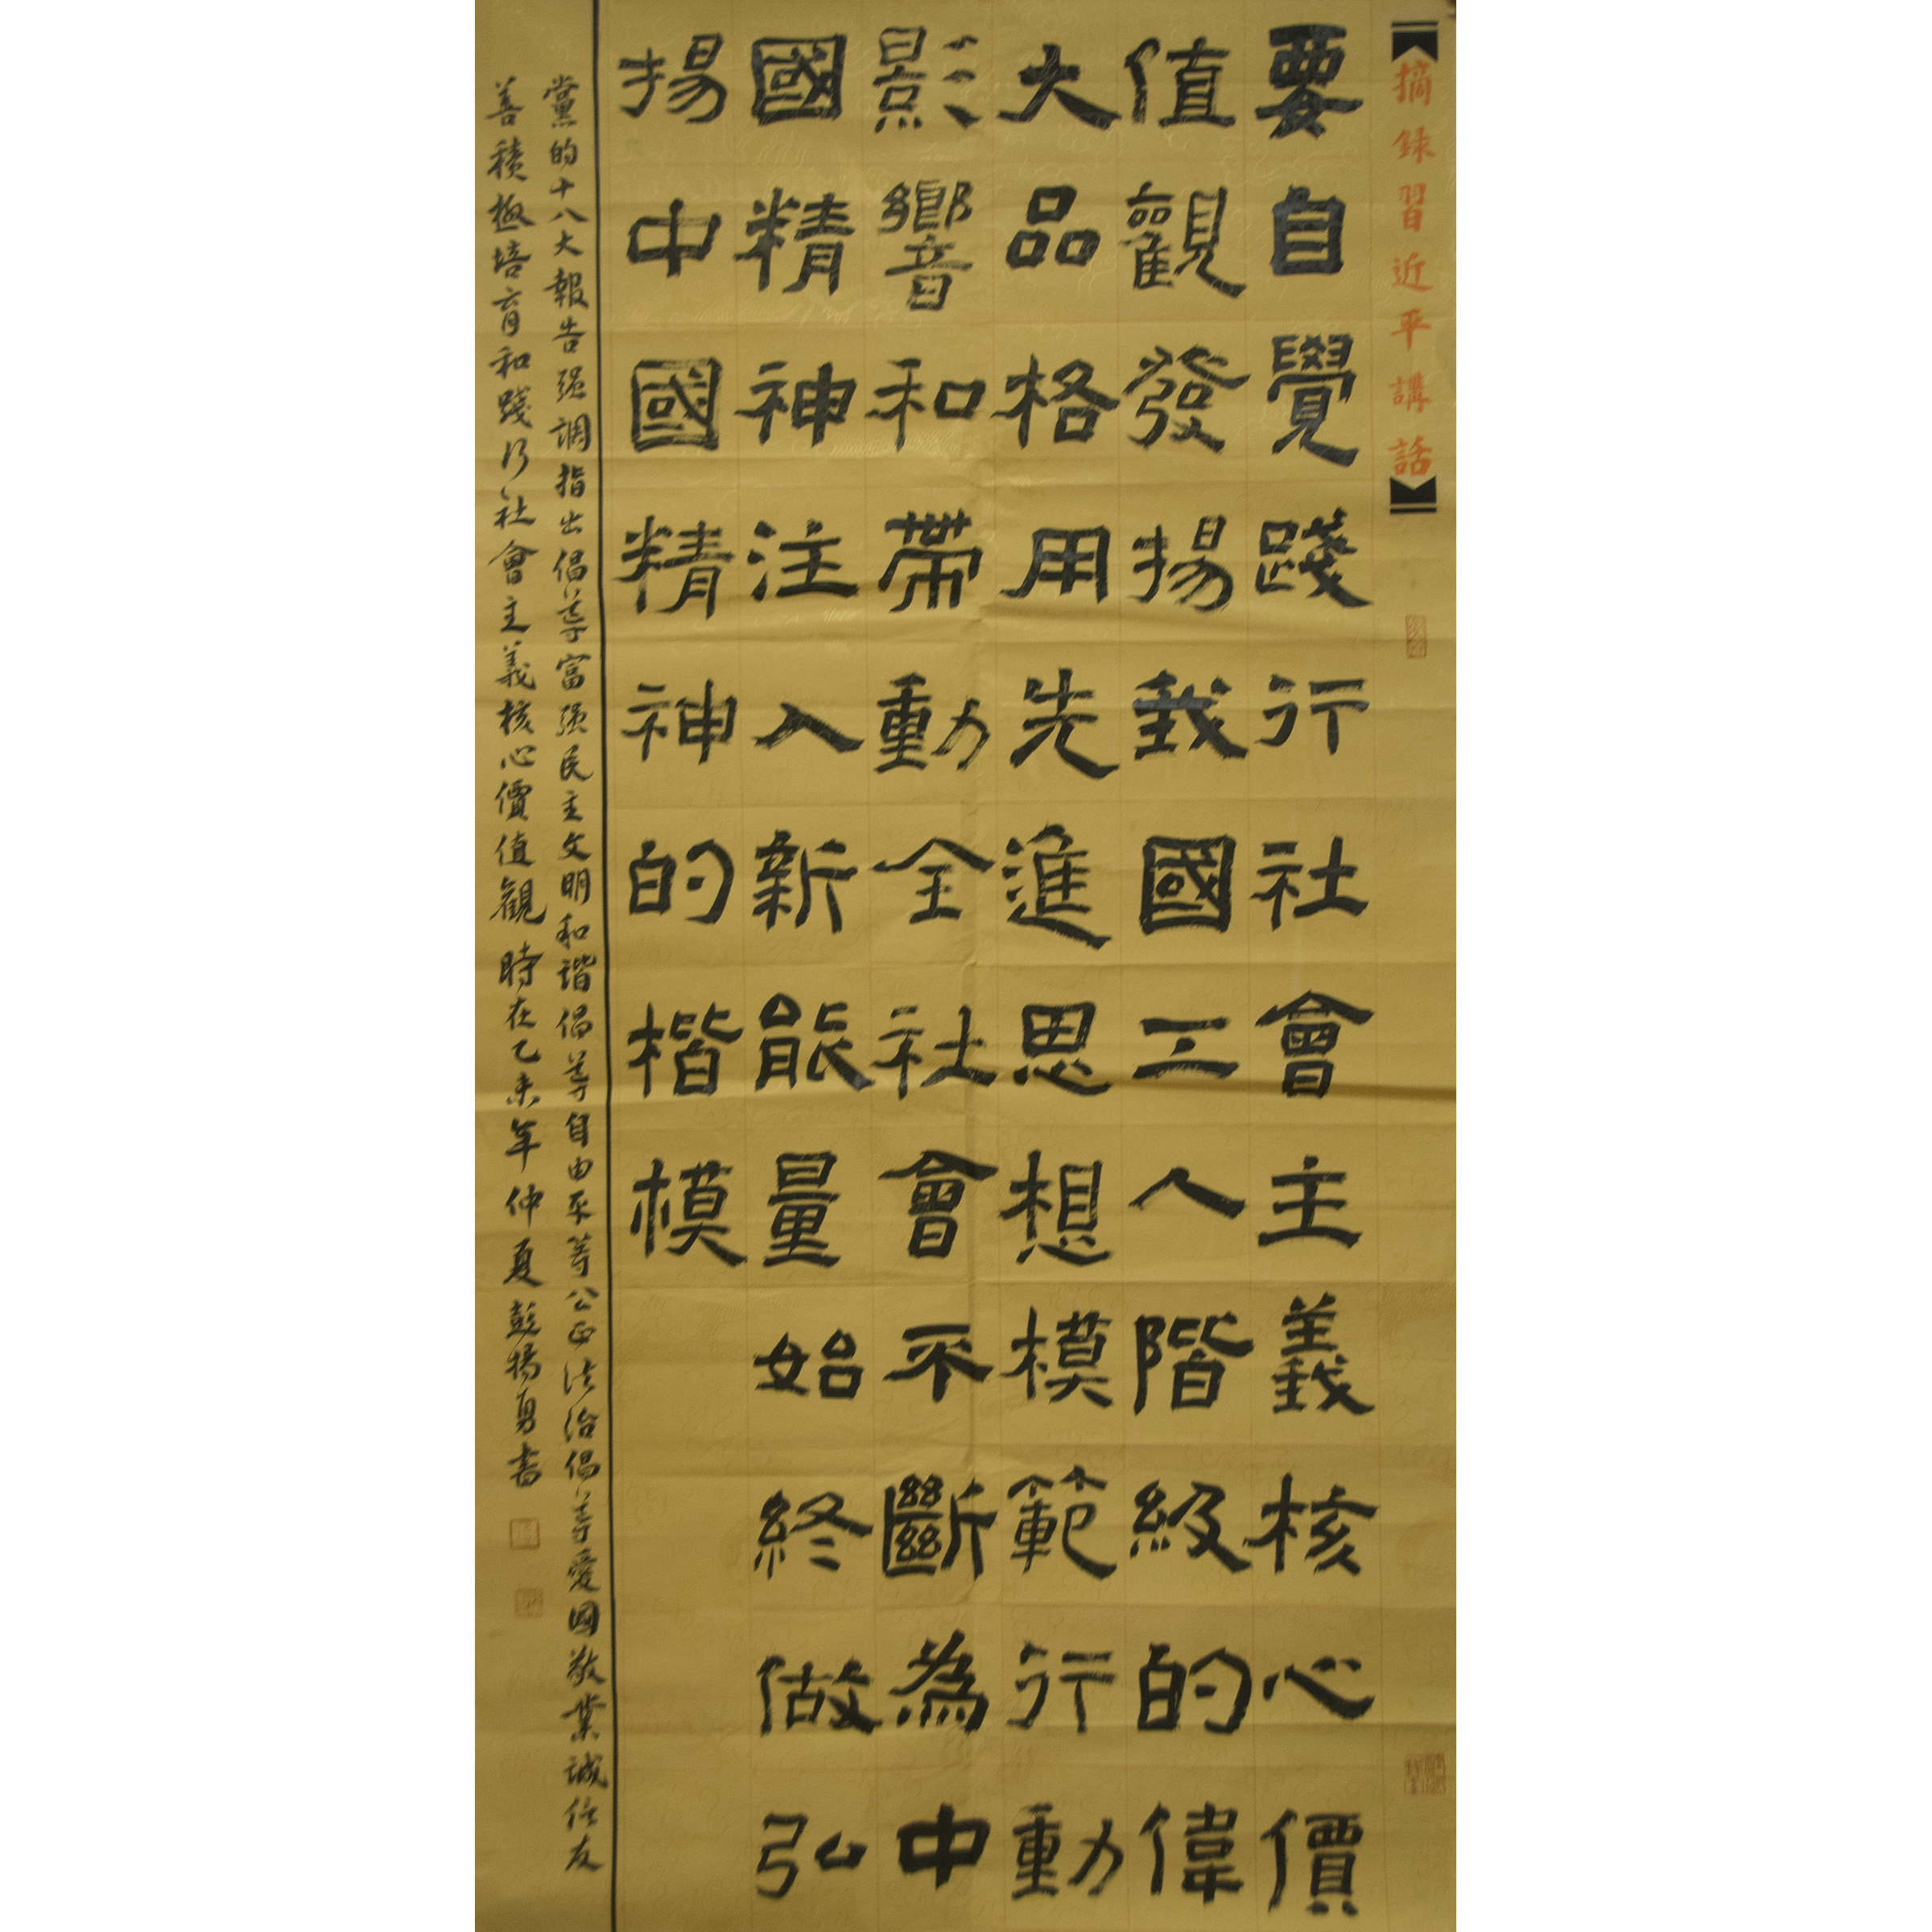 摘録習近平講話
要自覺踐行社會主義核心價
值觀發揚我國工人階級的偉
大品格用先進思想模範行動
影響和帶動全社會不斷為中
國精神注入新能量始終做弘
揚中國精神的楷模
黨的十八大報告强調指出倡導富强民主文明和諧倡導自由平等公正法治倡導愛國敬業誠信友
善積極培育和踐行社會主義核心價值觀時在乙未年仲夏彭揚勇書